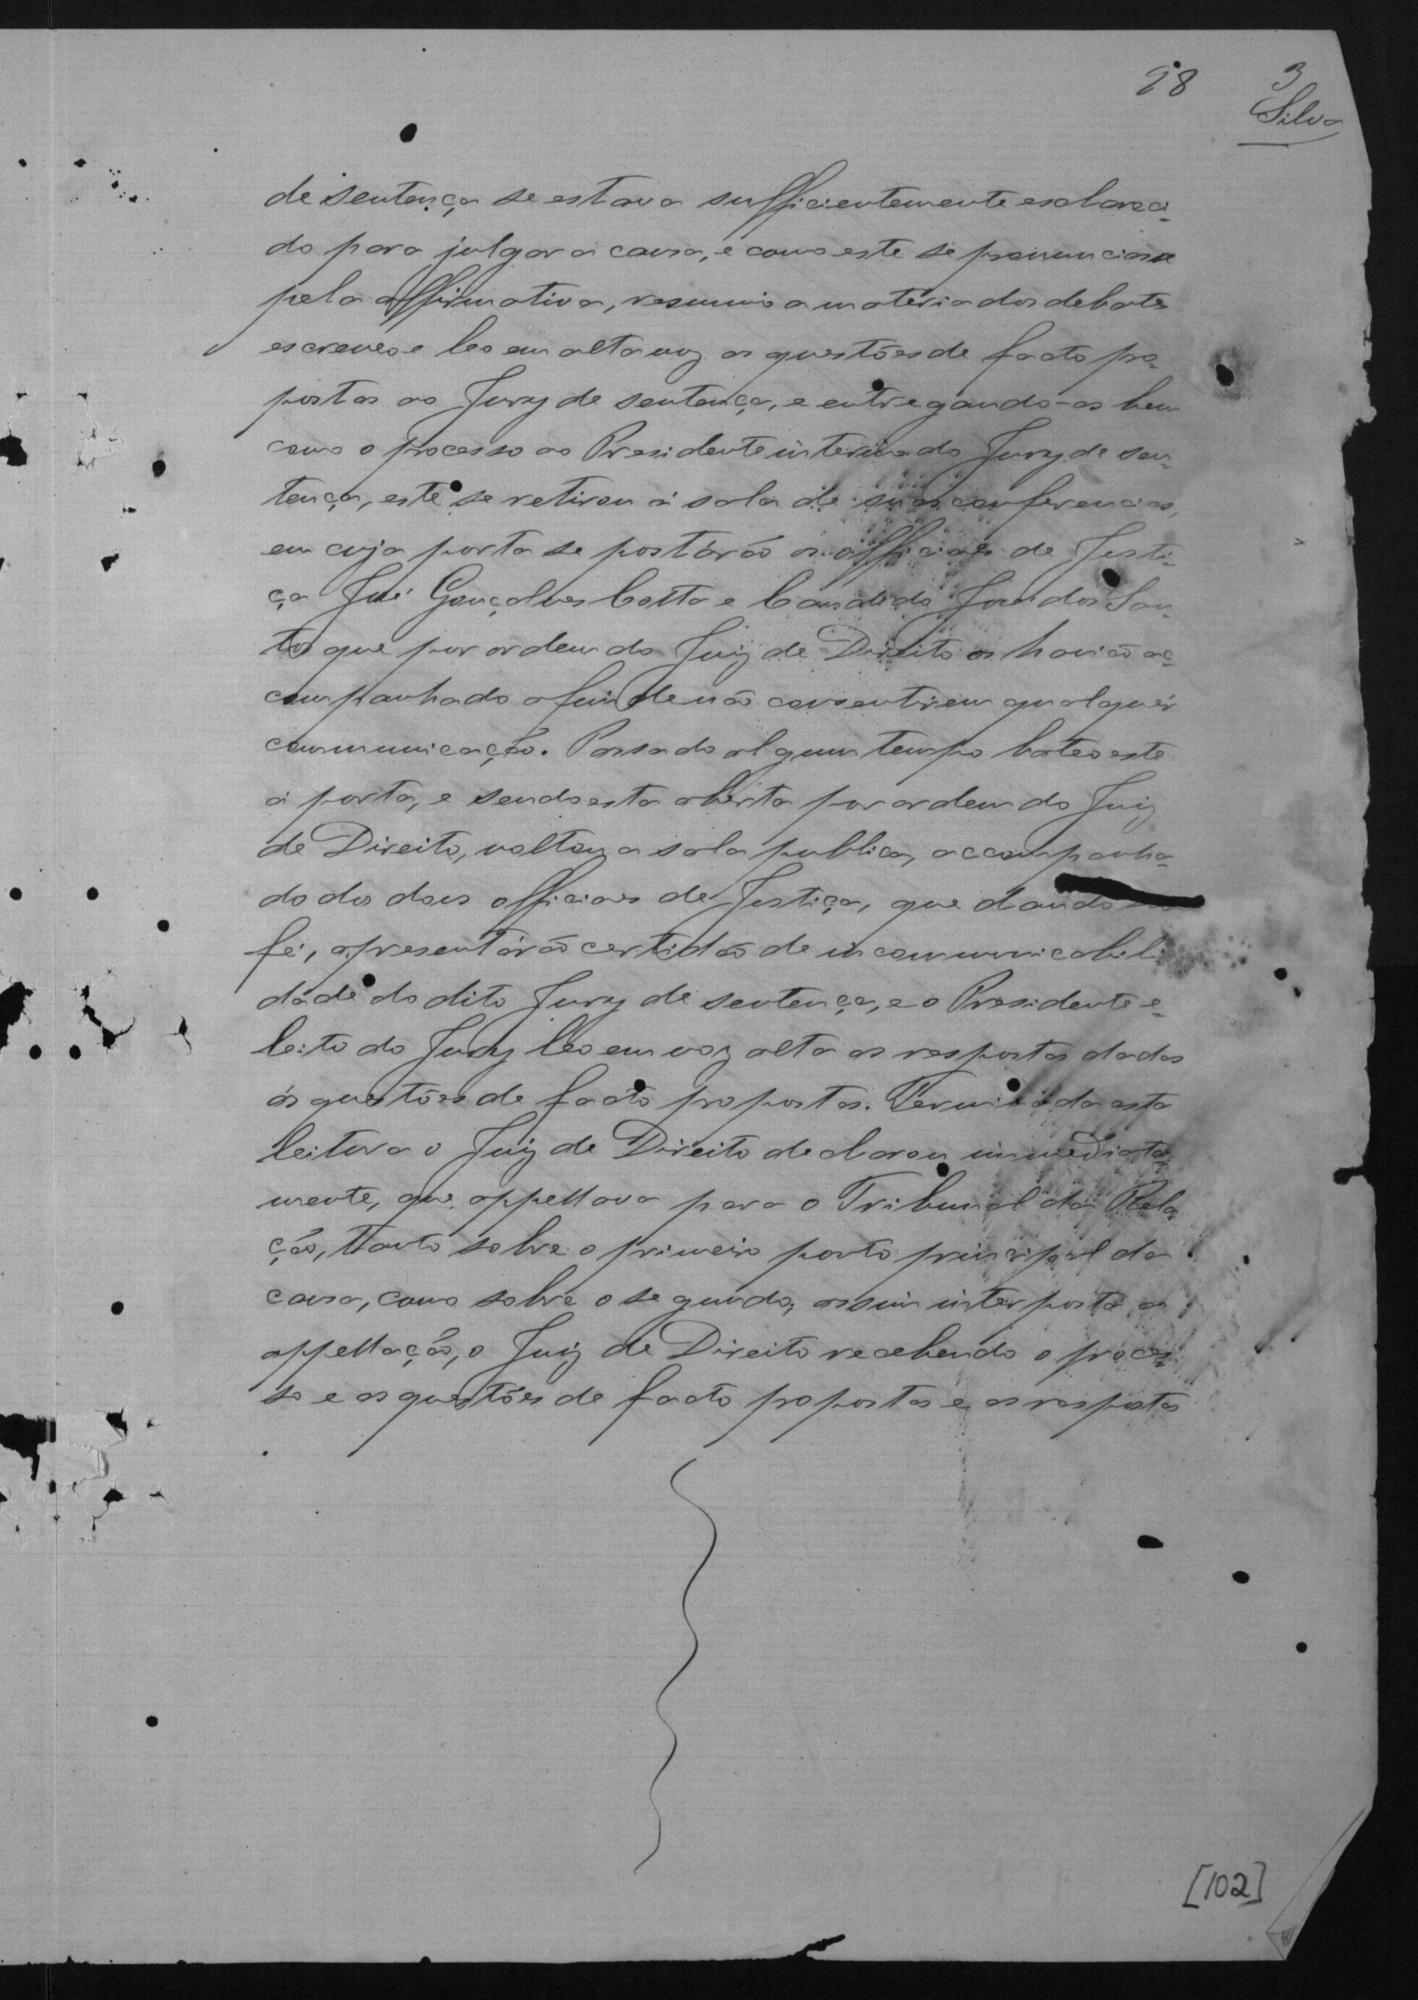 98 3
Silva
de sentença se estava sufficientemente esclareci-
do para julgar a causa, e como este se pronunciasse
pela affirmativa, resumio a materia dos debates
escreveo e leo em alta voz as questões de facto pro-
postas ao Jury de sentença, e entregando-as bem
como o processo ao Presidente interino do Jury de sen-
tença, este se retirou á sala de suas conferencias,
em cuja porta se postárão os officiaes de Justi-
ça José Gonçalves Cotta e Candido José dos San-
tos que por ordem do Juiz de Direito os havião ac-
companhado afim de não consentirem qualquér
communicação. Passado algum tempo bateo este
á porta, e sendo esta aberta por ordem do Juiz
de Direito, voltou a sala publica, accompanha-
do dos dois officiaes de Justiça, que dando
fé, apresentárão certidão de incommunicabili-
dade do dito Jury de sentença, e o Presidente e-
leito do Jury leo em voz alta as respostas dadas
ás questões de facto propostas. Terminada esta
leitura o Juiz de Direito declarou immediata-
mente, que appellava para o Tribunal da Rela-
ção, tanto sobre o primeiro ponto principal da
causa, como sobre o segundo; assim interposta a
appellação, o Juiz de Direito recebendo o proces-
so e as questões de facto propostas e as respostas
[102]